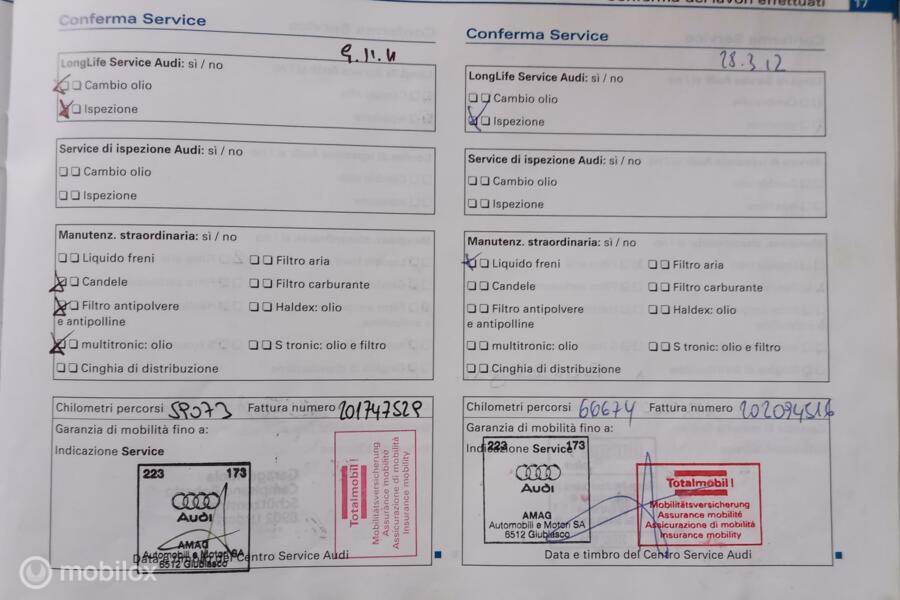 17
Conferma Service
9.11.11
LongLife Service Audi: sì / no
Cambio olio
Ispezione
Service di ispezione Audi: sì / no
Cambio olio
Ispezione
Manutenz. straordinaria: sì / no
Liquido freni
Filtro aria
Candele
Filtro carburante
Filtro antipolvere
e antipolline
Haldex: olio
multitronic: olio
S tronic: olio e filtro
Cinghia di distribuzione
Chilometri percorsi 59073 Fattura numero 201747529
Garanzia di mobilità fino a:
Indicazione Service
223 173
Audi
AMAG
Automobili e Motori SA
6512 Giubiasco
Totalmobil!
Mobilitätsversicherung
Assurance mobilité
Assicurazione di mobilità
Insurance mobility
Data e timbro del Centro Service Audi
Conferma Service
28.3.12
LongLife Service Audi: sì / no
Cambio olio
Ispezione
Service di ispezione Audi: sì / no
Cambio olio
Ispezione
Manutenz. straordinaria: sì / no
Liquido freni
Filtro aria
Candele
Filtro carburante
Filtro antipolvere
e antipolline
Haldex: olio
multitronic: olio
S tronic: olio e filtro
Cinghia di distribuzione
Chilometri percorsi 66674 Fattura numero 202094516
Garanzia di mobilità fino a:
Indicazione Service
223 173
Audi
AMAG
Automobili e Motori SA
6512 Giubiasco
Totalmobil!
Mobilitätsversicherung
Assurance mobilité
Assicurazione di mobilità
Insurance mobility
Data e timbro del Centro Service Audi
mobilox